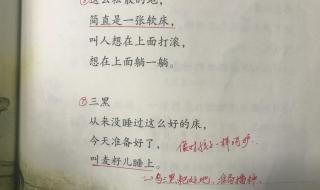 ②这么松散的地，
简直是一张软床，
叫人想在上面打滚，
想在上面躺一躺。
⑦三黑
从来没睡过这么好的床，
今天准备好了，
像对孩子一样呵护
叫麦籽儿睡上。
三黑耙好地，准备播种.